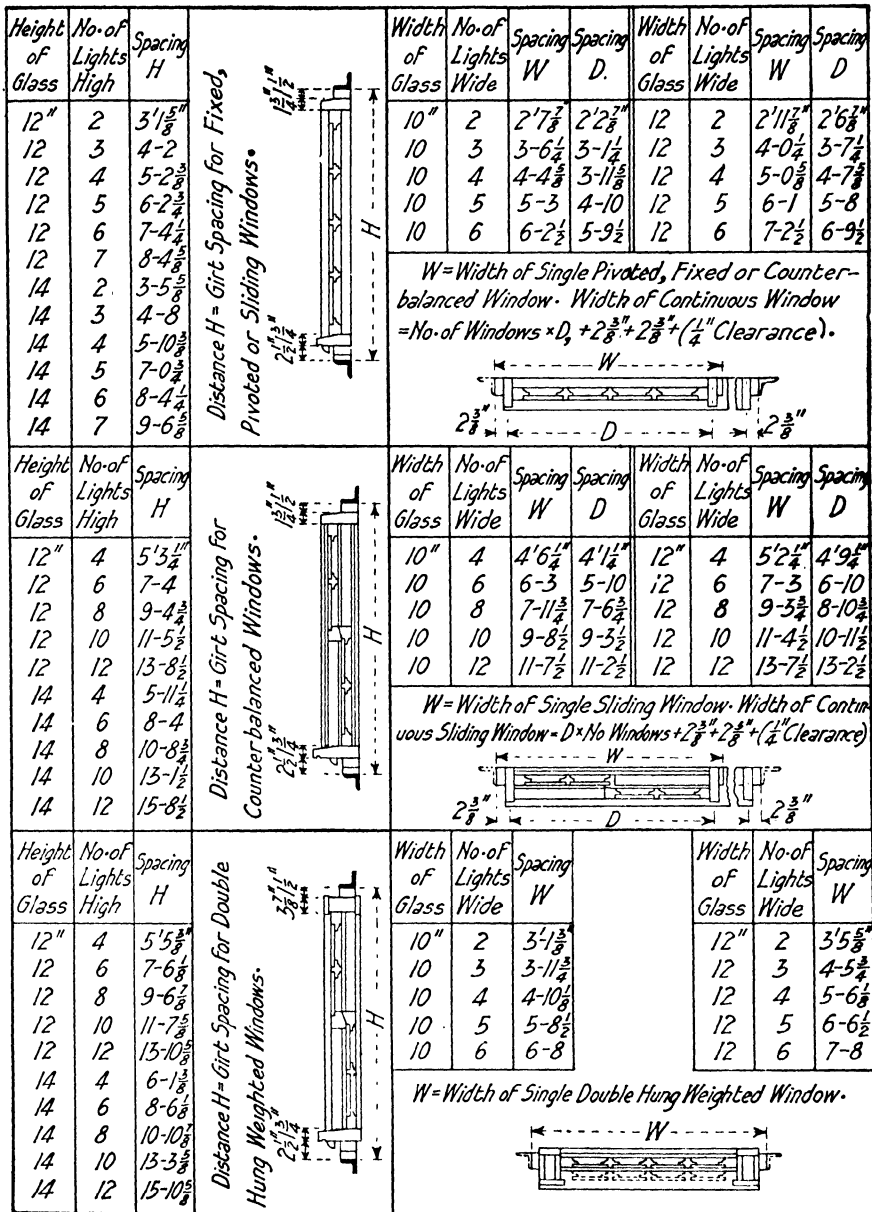 Height of Glass | No. of Lights High | Spacing H
12" | 2 | 3'1 5/8"
12 | 3 | 4-2
12 | 4 | 5-2 3/8
12 | 5 | 6-2 3/4
12 | 6 | 7-4 1/4
12 | 7 | 8-4 5/8
14 | 2 | 3-5 5/8
14 | 3 | 4-8
14 | 4 | 5-10 3/8
14 | 5 | 7-0 3/4
14 | 6 | 8-4 1/4
14 | 7 | 9-6 5/8
Distance H = Girt Spacing for Fixed,
Pivoted or Sliding Windows.
1 3/4" 1/2"
H
2 1/2" 1 3/4"
Width of Glass | No. of Lights Wide | Spacing W | Spacing D. | Width of Glass | No. of Lights Wide | Spacing W | Spacing D
10" | 2 | 2'7 7/8" | 2'2 7/8" | 12 | 2 | 2'11 7/8" | 2'6 7/8"
10 | 3 | 3-6 1/4 | 3-1 1/4 | 12 | 3 | 4-0 1/4 | 3-7 1/4
10 | 4 | 4-4 5/8 | 3-11 5/8 | 12 | 4 | 5-0 5/8 | 4-7 5/8
10 | 5 | 5-3 | 4-10 | 12 | 5 | 6-1 | 5-8
10 | 6 | 6-2 1/2 | 5-9 1/2 | 12 | 6 | 7-2 1/2 | 6-9 1/2
W = Width of Single Pivoted, Fixed or Counter-
balanced Window. Width of Continuous Window
= No. of Windows × D, + 2 3/8" + 2 3/8" + (1/4" Clearance).
W
2 3/8" D 2 3/8"
Height of Glass | No. of Lights High | Spacing H
12" | 4 | 5'3 1/4"
12 | 6 | 7-4
12 | 8 | 9-4 3/4
12 | 10 | 11-5 1/2
12 | 12 | 13-8 1/2
14 | 4 | 5-11 1/4
14 | 6 | 8-4
14 | 8 | 10-8 3/4
14 | 10 | 13-1 1/2
14 | 12 | 15-8 1/2
Distance H = Girt Spacing for
Counterbalanced Windows.
1 3/4" 1/2"
H
2 1/2" 1 3/4"
Width of Glass | No. of Lights Wide | Spacing W | Spacing D | Width of Glass | No. of Lights Wide | Spacing W | Spacing D
10" | 4 | 4'6 1/4" | 4'1 1/4" | 12" | 4 | 5'2 1/4" | 4'9 1/4"
10 | 6 | 6-3 | 5-10 | 12 | 6 | 7-3 | 6-10
10 | 8 | 7-11 3/4 | 7-6 3/4 | 12 | 8 | 9-3 3/4 | 8-10 3/4
10 | 10 | 9-8 1/2 | 9-3 1/2 | 12 | 10 | 11-4 1/2 | 10-11 1/2
10 | 12 | 11-7 1/2 | 11-2 1/2 | 12 | 12 | 13-7 1/2 | 13-2 1/2
W = Width of Single Sliding Window. Width of Contin-
uous Sliding Window = D × No Windows + 2 3/8" + 2 3/8" + (1/4" Clearance)
W
2 3/8" D 2 3/8"
Height of Glass | No. of Lights High | Spacing H
12" | 4 | 5'5 3/8"
12 | 6 | 7-6 1/8
12 | 8 | 9-6 7/8
12 | 10 | 11-7 5/8
12 | 12 | 13-10 5/8
14 | 4 | 6-1 3/8
14 | 6 | 8-6 1/8
14 | 8 | 10-10 7/8
14 | 10 | 13-3 5/8
14 | 12 | 15-10 5/8
Distance H = Girt Spacing for Double
Hung Weighted Windows.
3 7/8" 1/2"
H
2 1/2" 1 3/4"
Width of Glass | No. of Lights Wide | Spacing W
10" | 2 | 3'-1 3/8"
10 | 3 | 3-11 3/4
10 | 4 | 4-10 1/8
10 | 5 | 5-8 1/2
10 | 6 | 6-8
Width of Glass | No. of Lights Wide | Spacing W
12" | 2 | 3'5 5/8"
12 | 3 | 4-5 3/4
12 | 4 | 5-6 1/8
12 | 5 | 6-6 1/2
12 | 6 | 7-8
W = Width of Single Double Hung Weighted Window.
W